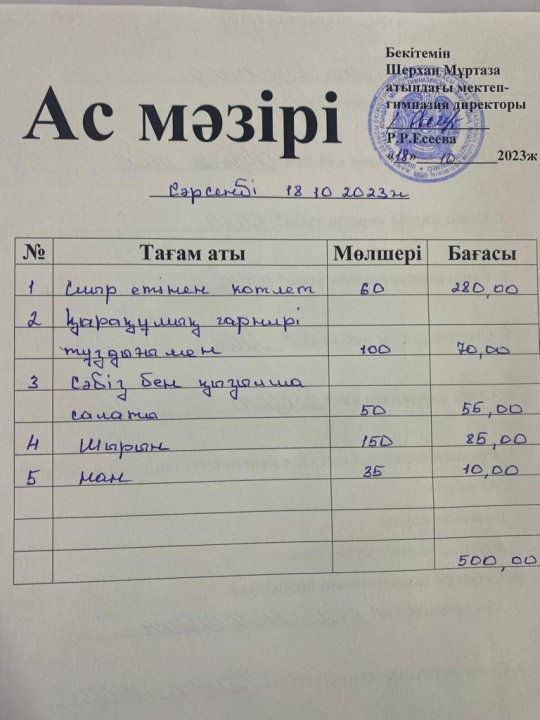 Бекітемін
Шерхан Мұртаза
атындағы мектеп-
гимназия директоры
Р.Р.Есеева
«18» 10 2023ж
Ас мәзірі
Сәрсенбі 18 10 2023ж
№ Тағам аты Мөлшері Бағасы
1 Сиыр етінен котлет 60 280,00
2 Қарақұмық гарнирі
тұздығымен 100 70,00
3 Сәбіз бен қызылша
салаты 50 55,00
4 Шырын 150 85,00
5 нан 35 10,00
500,00